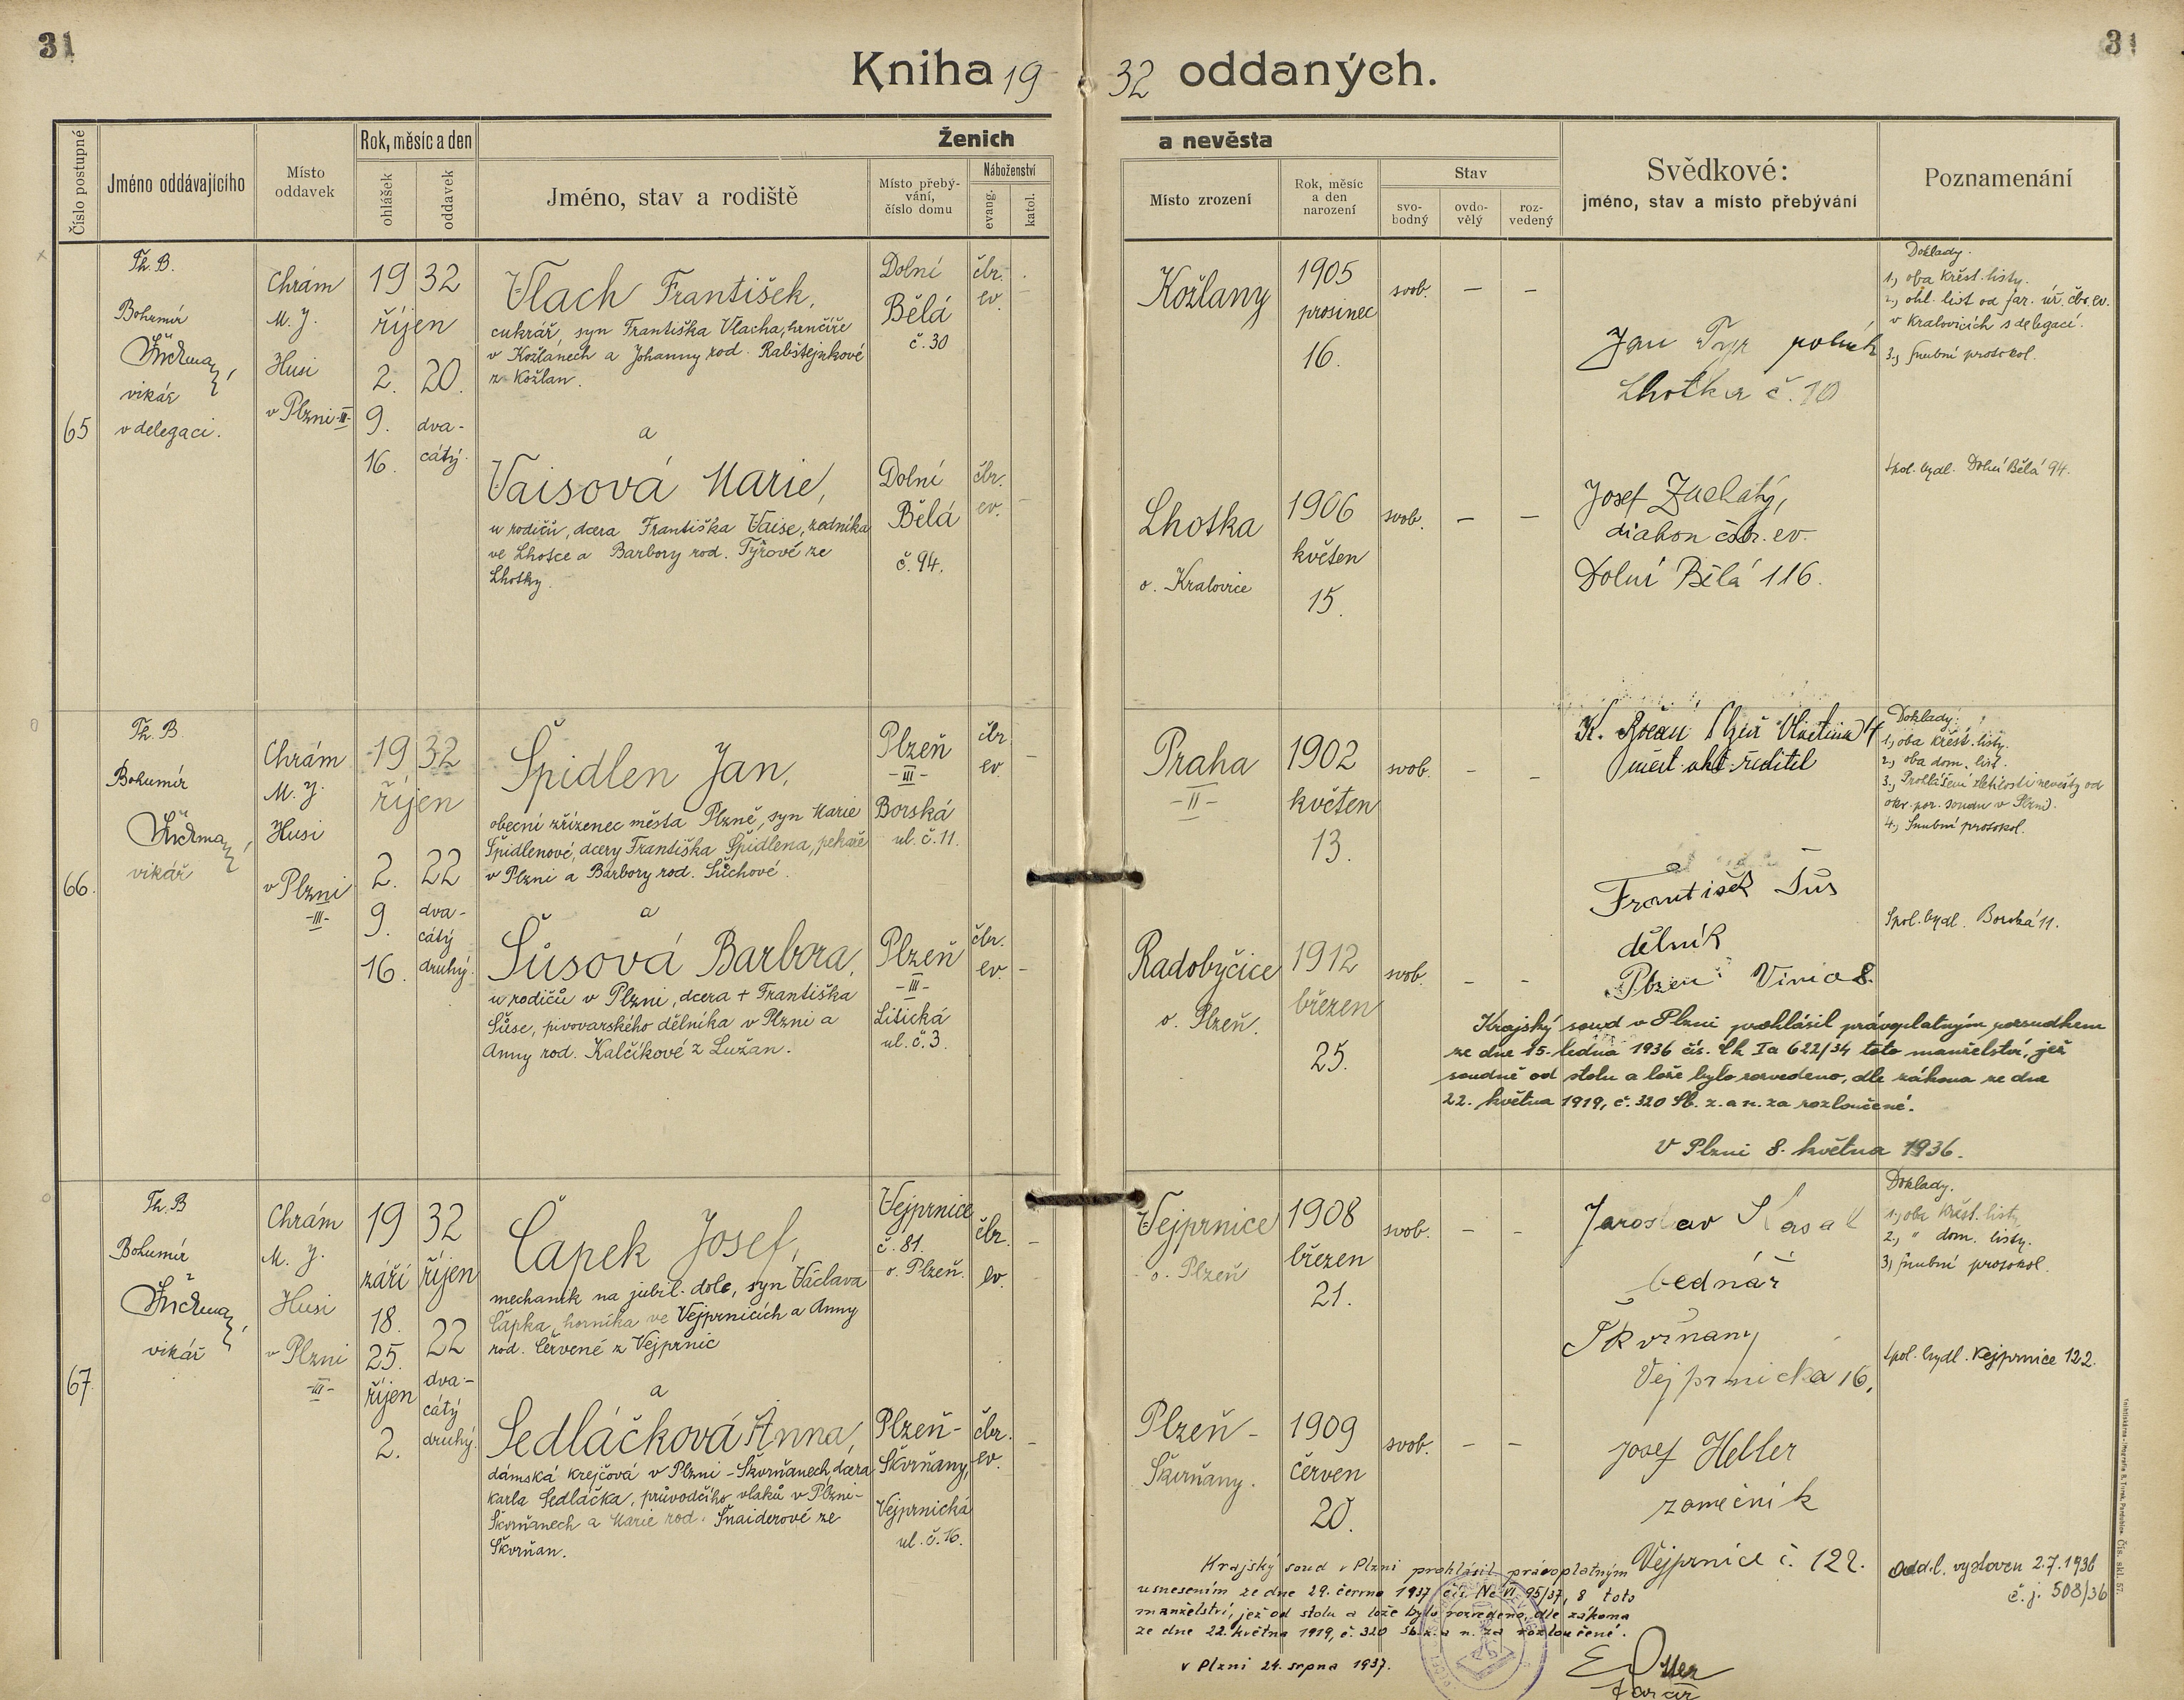 31
31
Kniha 19 32 oddaných.
Číslo postupné
Jméno oddávajícího
Místo
oddavek
Rok, měsíc a den
ohlášek
oddavek
Ženich
a nevěsta
Jméno, stav a rodiště
Místo přebý-
vání,
číslo domu
Náboženství
evang.
katol.
Místo zrození
Rok, měsíc
a den
narození
Stav
svo-
bodný
ovdo-
vělý
roz-
vedený
Svědkové:
jméno, stav a místo přebývání
Poznamenání
65
Th. B.
Bohumír
vikář
v delegaci.
Chrám
M. J.
Husi
v Plzni -III-
19 32
říjen
2. 20.
9. dva-
16. cátý.
Vlach František,
cukrář, syn Františka Vlacha, hrnčíře
v Kožlanech a Johanny rod. Rabštejnkové
z Kožlan.
Dolní
Bělá
č. 30
čbr.
ev.
Kožlany
1905
prosinec
16.
svob. – –
Jan rolník
Lhotka č. 10
Doklady.
1., oba křest. listy.
2., ohl. list od far. úř. čbr. ev.
v Kralovicích s delegací.
3., snubní protokol.
a
Vaisová Marie,
u rodičů, dcera Františka Vaise, zedníka
ve Lhotce a Barbory rod. Týřové ze
Lhotky.
Dolní
Bělá
č. 94.
čbr.
ev.
Lhotka
o. Kralovice
1906
květen
15.
svob. – –
Josef Zuchatý,
diakon čsbr. ev.
Dolní Bělá 116.
Spol. bydl. Dolní Bělá 94.
66.
Th. B.
Bohumír
vikář
Chrám
M. J.
Husi
v Plzni
-III-
19 32
říjen
2. 22
9. dva-
cátý
16. druhý.
Špidlen Jan,
obecní zřízenec města Plzně, syn Marie
Špidlenové, dcery Františka Špidlena, pekaře
v Plzni a Barbory rod. Sůchové.
Plzeň
-III-
Borská
ul. č. 11.
čbr
ev.
Praha
-II-
1902
květen
13.
svob. – –
ředitel
Doklady:
1., oba křest. listy.
2., oba dom. list.
3., Prohlášení zletilosti nevěsty od
okr. por. soudu v Plzni.
4., Snubní protokol.
a
Šůsová Barbora,
u rodičů v Plzni, dcera + Františka
Šůse, pivovarského dělníka v Plzni a
Anny rod. Kalčíkové z Lužan.
Plzeň
-III-
Litická
ul. č. 3.
čbr.
ev.
Radobyčice
o. Plzeň.
1912
březen
25.
svob. – –
František Šůs
dělník
Plzeň 8.
Spol. bydl. Borská 11.
Krajský soud v Plzni prohlásil právoplatným rozsudkem
ze dne 15. ledna 1936 čís. Ck Ia 622/34 toto manželství, jež
soudně od stolu a lože bylo rozvedeno, dle zákona ze dne
22. května 1919, č. 320 Sb. z. a n. za rozloučené.
V Plzni 8. května 1936.
67
Th. B
Bohumír
vikář
Chrám
M. J.
Husi
v Plzni
-III-
19 32
září říjen
18.
25. 22
říjen dva-
cátý
2. druhý.
Čapek Josef,
mechanik na jubil. dole, syn Václava
Čapka, horníka ve Vejprnicích a Anny
rod. Červené z Vejprnic
Vejprnice
č. 81.
o. Plzeň.
čbr.
ev.
Vejprnice
o. Plzeň
1908
březen
21.
svob. – –
Jaroslav
bednář
Škvrňany
Vejprnická 16,
Doklady.
1., oba křest. listy
2., " dom. listy.
3., snubní protokol.
Spol. bydl. Vejprnice 122.
a
Sedláčková Anna,
dámská krejčová v Plzni - Škvrňanech, dcera
Karla Sedláčka, průvodčího vlaků v Plzni-
Škvrňanech a Marie rod. Šnaiderové ze
Škvrňan.
Plzeň-
Škvrňany,
Vejprnická
ul. č. 16.
čbr.
ev.
Plzeň -
Škvrňany.
1909
červen
20.
svob. – –
Josef Heller
zámečník
Vejprnice č. 122.
Odd. l. vystaven 2.7.1936
č. j. 508/36
Krajský soud v Plzni prohlásil právoplatným
usnesením ze dne 29. června 1937 čís. Nc VI 95/37, 8 toto
manželství, jež od stolu a lože bylo rozvedeno, dle zákona
ze dne 22. května 1919, č. 320 Sb. z. a n. za rozloučené.
v Plzni 24. srpna 1937.
farář